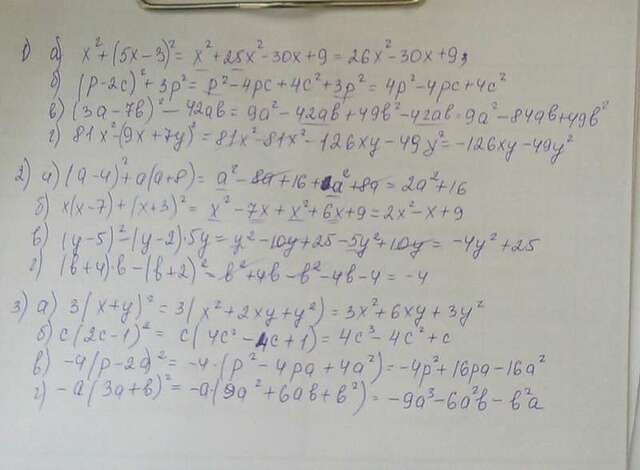 1) а) x²+(5x-3)²= x²+25x²-30x+9=26x²-30x+9;
б) (p-2c)²+3p²= p²-4pc+4c²+3p²=4p²-4pc+4c²
в) (3a-7b)²-42ab=9a²-42ab+49b²-42ab=9a²-84ab+49b²
г) 81x²-(9x+7y)²=81x²-81x²-126xy-49y²=-126xy-49y²
2) а) (a-4)²+a(a+8)= a²-8a+16+a²+8a=2a²+16
б) x(x-7)+(x+3)²= x²-7x+x²+6x+9=2x²-x+9
в) (y-5)²-(y-2)·5y=y²-10y+25-5y²+10y=-4y²+25
г) (b+4)·b-(b+2)²=b²+4b-b²-4b-4=-4
3) а) 3(x+y)²=3(x²+2xy+y²)=3x²+6xy+3y²
б) c(2c-1)²= c(4c²-4c+1)=4c³-4c²+c
в) -4(p-2a)²=-4·(p²-4pa+4a²)=-4p²+16pa-16a²
г) -a(3a+b)²=-a(9a²+6ab+b²)=-9a³-6a²b-b²a